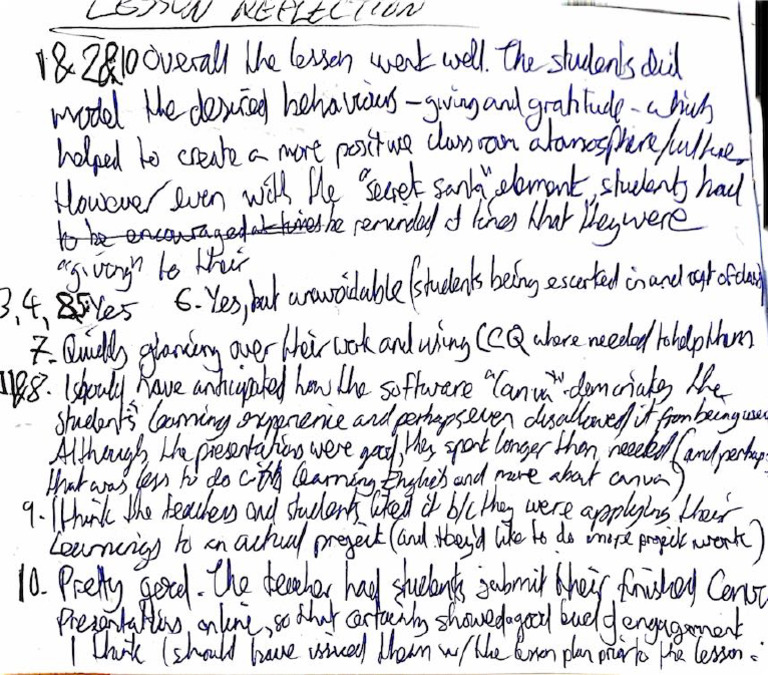 LESSON REFLECTION
1 & 2 & 10 Overall the lesson went well. The students did
model the desired behaviours - giving and gratitude - which
helped to create a more positive classroom atamosphere/culture.
However even with the "secret santa" element, students had
to be encouraged at times be reminded at times that they were
"giving" to their
3, 4, & 5. Yes 6. Yes, but unavoidable (students being escorted in and out of class)
7. Quickly glancing over their work and using CCQ where needed to help them
11&8. I should have anticipated how the software "Canva" dominates the
students' learning experience and perhaps even disallowed it from being used
Although the presentations were good, they spent longer than needed (and perhaps
that was less to do with learning English and more about canva)
9. I think the teachers and students liked it b/c they were applying their
learnings to an actual project (and they'd like to do more project work)
10. Pretty good. The teacher had students submit their finished Canva
Presentations online, so that certainly showed a good level of engagement
I think I should have issued them w/ the lesson plan prior to the lesson.